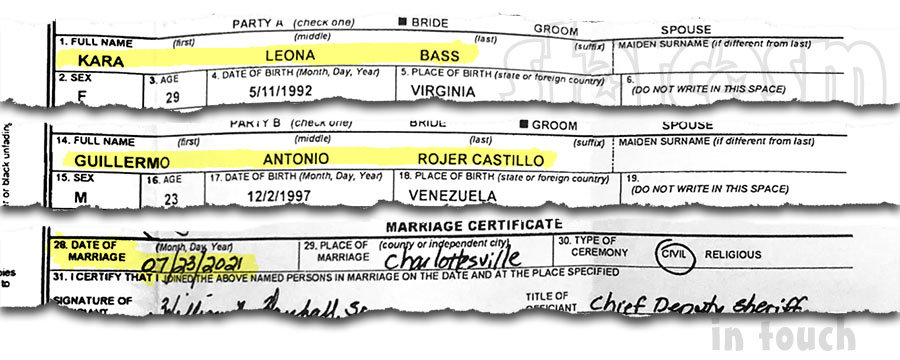 PARTY A (check one) ■ BRIDE GROOM SPOUSE
1. FULL NAME (first) (middle) (last) (suffix) MAIDEN SURNAME (if different from last)
KARA LEONA BASS
2. SEX 3. AGE 4. DATE OF BIRTH (Month, Day, Year) 5. PLACE OF BIRTH (state or foreign country) 6.
F 29 5/11/1992 VIRGINIA (DO NOT WRITE IN THIS SPACE)
starcasm
PARTY B (check one) BRIDE ■ GROOM SPOUSE
14. FULL NAME (first) (middle) (last) (suffix) MAIDEN SURNAME (if different from last)
GUILLERMO ANTONIO ROJER CASTILLO
15. SEX 16. AGE 17. DATE OF BIRTH (Month, Day, Year) 18. PLACE OF BIRTH (state or foreign country) 19.
M 23 12/2/1997 VENEZUELA (DO NOT WRITE IN THIS SPACE)
or black unfading
MARRIAGE CERTIFICATE
28. DATE OF (Month, Day, Year) 29. PLACE OF (county or independent city) 30. TYPE OF
MARRIAGE 07/23/2021 MARRIAGE Charlottesville CEREMONY CIVIL RELIGIOUS
31. I CERTIFY THAT I JOINED THE ABOVE NAMED PERSONS IN MARRIAGE ON THE DATE AND AT THE PLACE SPECIFIED
SIGNATURE OF TITLE OF
Chief Deputy Sheriff
in touch